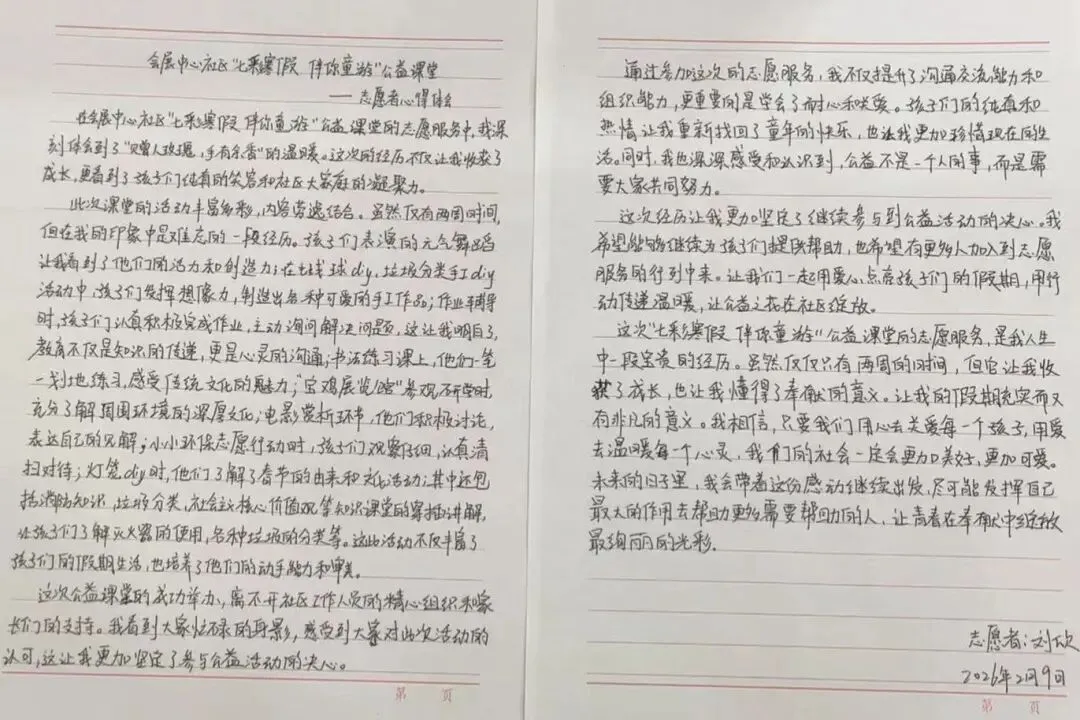 会展中心社区"七彩寒假 伴你童游"公益课堂
——志愿者心得体会
在会展中心社区"七彩寒假 伴你童游"公益课堂的志愿服务中,我深
刻体会到了"赠人玫瑰,手有余香"的温暖。这次的经历不仅让我收获了
成长,更看到了孩子们纯真的笑容和社区大家庭的凝聚力。
此次课堂的活动丰富多彩,内容劳逸结合。虽然仅有两周时间,
但在我的印象中是难忘的一段经历。孩子们表演的元气舞蹈
让我看到了他们的活力和创造力;在毛线球diy,垃圾分类手工diy
活动中,孩子们发挥想像力,制造出各种可爱的手工作品;作业辅导
时,孩子们认真积极完成作业,主动询问解决问题,这让我明白了,
教育不仅是知识的传递,更是心灵的沟通;书法练习课上,他们一笔
一划地练习,感受传统文化的魅力;"宝鸡展览馆"参观研学时,
充分了解周围环境的深厚文化;电影赏析环节,他们积极讨论,
表达自己的见解;小小环保志愿行动时,孩子们观察仔细,认真清
扫对待;灯笼diy时,他们了解了春节的由来和文化活动;其中还包
括消防知识,垃圾分类,社会主义核心价值观等知识课堂的穿插讲解,
让孩子们了解灭火器的使用,各种垃圾的分类等。这些活动不仅丰富了
孩子们的假期生活,也培养了他们的动手能力和审美。
这次公益课堂的成功举办,离不开社区工作人员的精心组织和家
长们的支持。我看到大家忙碌的身影,感受到大家对此次活动的
认可,这让我更加坚定了参与公益活动的决心。
第 页
通过参加这次的志愿服务,我不仅提升了沟通交流能力和
组织能力,更重要的是学会了耐心和关爱。孩子们的纯真和
热情让我重新找回了童年的快乐,也让我更加珍惜现在的生
活。同时,我也深深感受和认识到,公益不是一个人的事,而是需
要大家共同努力。
这次经历让我更加坚定了继续参与到公益活动的决心。我
希望能够继续为孩子们提供帮助,也希望有更多人加入到志愿
服务的行列中来。让我们一起用爱心点亮孩子们的假期,用行
动传递温暖,让公益之花在社区绽放。
这次"七彩寒假 伴你童游"公益课堂的志愿服务,是我人生
中一段宝贵的经历。虽然仅仅只有两周的时间,但它让我收
获了成长,也让我懂得了奉献的意义。让我的假期充实而又
有非凡的意义。我相信,只要我们用心去关爱每一个孩子,用爱
去温暖每一个心灵,我们的社会一定会更加美好,更加可爱。
未来的日子里,我会带着这份感动继续出发,尽可能发挥自己
最大的作用去帮助更多需要帮助的人,让青春在奉献中绽放
最绚丽的光彩.
志愿者:刘欣
2026年2月9日
第 页